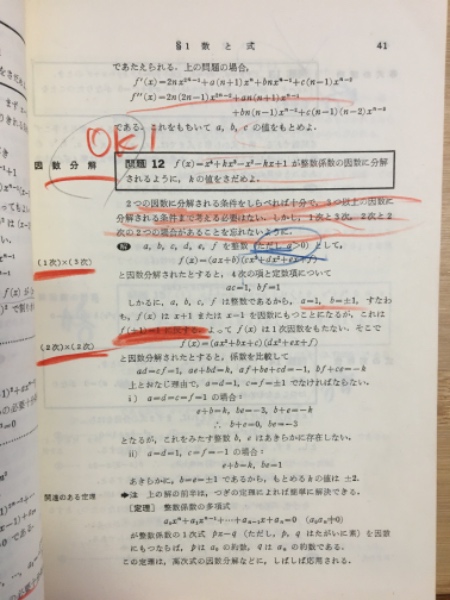 §1 数 と 式 41
であたえられる. 上の問題の場合,
f'(x)=2nx²ⁿ⁻¹+a(n+1)xⁿ+bnxⁿ⁻¹+c(n−1)xⁿ⁻²
f''(x)=2n(2n−1)x²ⁿ⁻²+an(n+1)xⁿ⁻¹
+bn(n−1)xⁿ⁻²+c(n−1)(n−2)xⁿ⁻³
である. これをもちいて a, b, c の値をもとめよ.
OK!
因 数 分 解
問題 12 f(x)=x⁴+kx³−x²−kx+1 が整数係数の因数に分解
されるように, k の値をさだめよ.
2つの因数に分解される条件をしらべれば十分で, 3つ以上の因数に
分解される条件まで考える必要はない. しかし, 1次と3次, 2次と2
次の2つの場合があることを忘れないように.
解 a, b, c, d, e, f を整数 (ただし a>0) として,
(1次)×(3次)
f(x)=(ax+b)(cx³+dx²+ex+f)
と因数分解されたとすると, 4次の項と定数項について
ac=1, bf=1
しかるに, a, b, c, f は整数であるから, a=1, b=±1, すなわ
ち, f(x) は x+1 または x−1 を因数にもつことになるが, これは
f(±1)=1 に反する. よって f(x) は1次因数をもたない. そこで
(2次)×(2次)
f(x)=(ax²+bx+c)(dx²+ex+f)
と因数分解されたとすると, 係数を比較して
ad=cf=1, ae+bd=k, af+be+cd=−1, bf+ce=−k
上とおなじ理由で, a=d=1, c=f=±1 でなければならない.
i) a=d=c=f=1 の場合:
e+b=k, be=−3, b+e=−k
∴ b+e=0, be=−3
となるが, これをみたす整数 b, e はあきらかに存在しない.
ii) a=d=1, c=f=−1 の場合:
e+b=k, be=1
あきらかに, b=e=±1 であるから, もとめる k の値は ±2.
関連のある定理
注 上の解の前半は, つぎの定理によれば簡単に解決できる.
[定理] 整数係数の多項式
a₀xⁿ+a₁xⁿ⁻¹+⋯+aₙ₋₁x+aₙ=0 (a₀aₙ≠0)
が整数係数の1次式 px−q (ただし, p, q はたがいに素) を因数
にもつならば, p は a₀ の約数, q は aₙ の約数である.
この定理は, 高次式の因数分解などに, しばしば応用される.